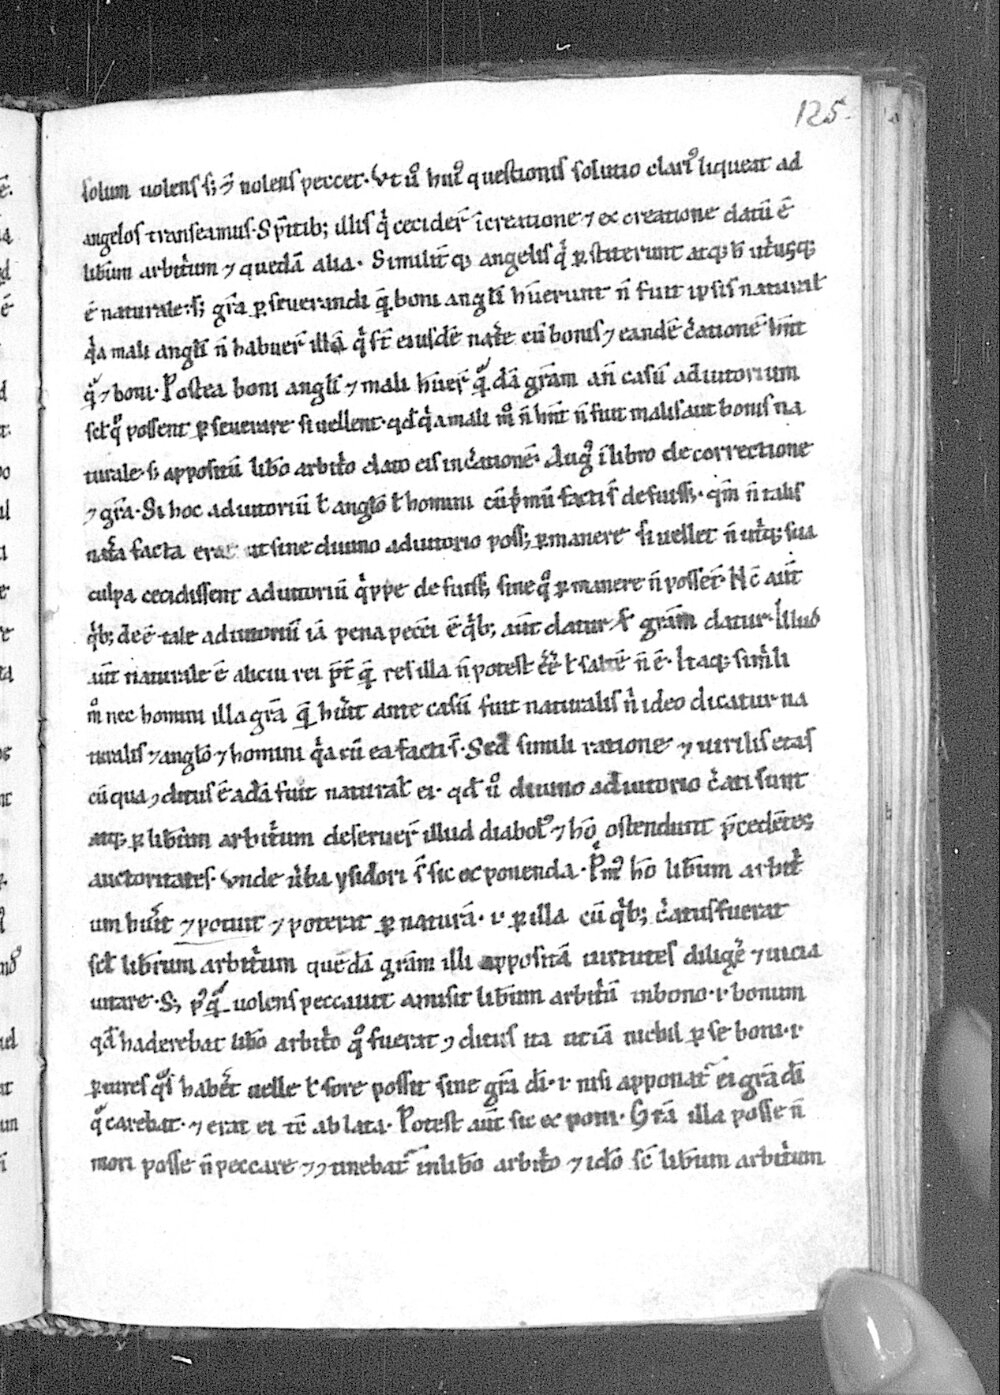 125.
solum uolens s; ⁊ nolens peccet. Vt u᷑o hui᷒ questionis solutio clari᷒ liqueat ad
angelos transeamus. Sp̅itib; illis q̇ cecider̅ i̅ creatione ⁊ ex creatione datū ē
lib̅um arbit̓um ⁊ quedā alia. Similit̅ q; angelis q̇ ꝑstiterunt atq; h̅ ut̓usq;
ē naturale. s; gr̅a ꝑseuerandi q̅ boni angl̅i h̅uerunt n̅ fuit ipsis natural̅
q̓a mali angl̅i n̅ habuer̅ illā q̇ st̅ eiusdē nat̓e cū bonis ⁊ eandē c̓ationē h̅nt
q̅ ⁊ boni. Postea boni angl̅i ⁊ mali h̅uer̅ q̅dā gr̅am an̅ casū adiutorium
scl̅ q̊ possent ꝑseuerare si uellent. qd̅ q̓a mali m̊ n̅ h̅nt n̅ fuit malis aut bonis na
turale. s; appositū lib̅o arbit̓o dato eis in c̓atione. Aug᷒ i̅ libro de correctione
⁊ gr̅a. Si hoc adiutoriū ł anglo̅ ł homini cū p̓mū facti s̅ defuiss;. qm̅ n̅ talis
nat̓a facta erat ut sine diuino adiutorio poss; ꝑmanere si uellet n̅ utiq; sua
culpa cecidissent adiutoriū q̓ppe defuiss; sine q̊ ꝑmanere n̅ posset. N̅c aut̅
q̓b; deē tale adiutoriū iā pena pecc̅i ē q̓b; aut̅ datur s̅ gr̅am datur. Illud
aut̅ naturale ē alicui rei p̅t̅ q̅ res illa n̅ potest e̅e̅ ł saltē n̅ ē. Itaq; simi̅li
m̊ nec homini illa gr̅a q̅ h̅uit ante casū fuit naturalis n̅ ideo dicatur na
turalis ⁊ anglo̅ ⁊ homini q̓a cū ea facti s̅. Sed simili ratione ⁊ uirilis etas
cū qua ꝯditus ē adā fuit natural̅ ei. qd̅ u̅ diuino adiutorio c̓ati sunt
atq; ꝑ lib̅um arbit̓um deseruer̅ illud diabol᷒ ⁊ ho̅ ostendunt p̅cedētes
auctoritates. Vnde u̅ba ysidori s̅ sic exponenda. P̓m᷒ ho̅ lib̅um arbit̓
um h̅uit ⁊ potuit ⁊ poterat ꝑ naturā. i. ꝑ illa cū q̓b; c̓atus fuerat
scl̅ lib̅rum arbit̓um quedā gr̅am illi appositā uirtutes dilig̅e ⁊ uicia
uitare. S; p᷒q̅ uolens peccauit amisit lib̅um arbit̓ū in bono. i. bonum
qd̅ haderebat lib̅o arbit̓o q̊ fuerat ꝯditus ita ut iā nichil ꝑ se boni. i.
ꝑ uires q̊s haber̅et uelle ł fore possit sine gr̅a dī. i. nisi apponat᷑ ei gr̅a dī
q̊ carebat. ⁊ erat ei tc̅ ablata. Potest aut̅ sic exponi. Gr̅a illa posse n̅
mori posse n̅ peccare ⁊ ꝯtinebat᷑ in lib̅o arbit̓o ⁊ ido̅ sc̅ lib̅um arbit̓um